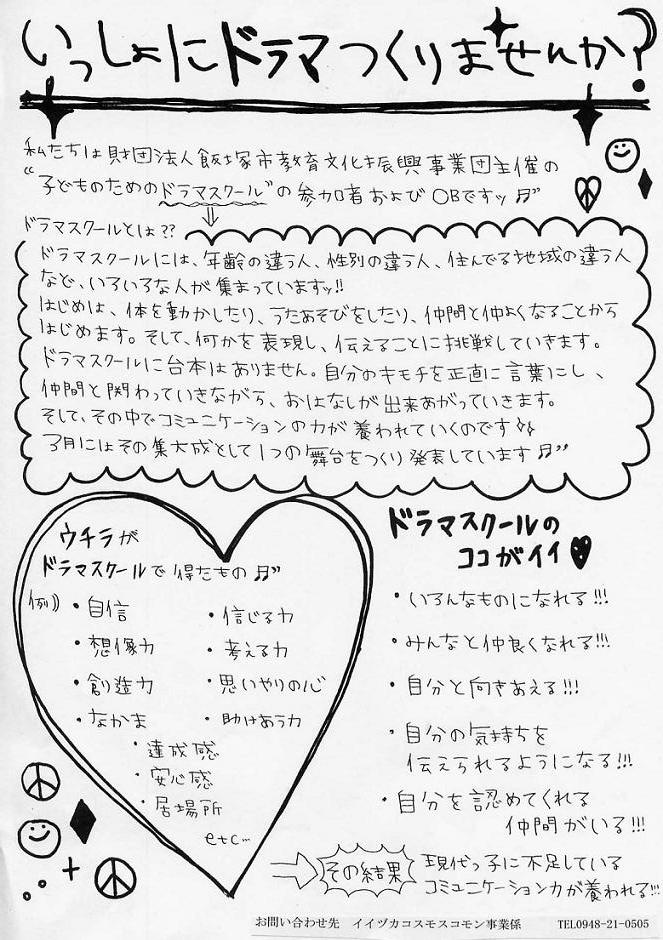 いっしょにドラマつくりませんか?
私たちは財団法人飯塚市教育文化振興事業団主催の
“子どものためのドラマスクール”の参加者およびOBですッ♬"
ドラマスクールとは??
ドラマスクールには、年齢の違う人、性別の違う人、住んでる地域の違う人
など、いろいろな人が集まっていますッ!!
はじめは、体を動かしたり、うたあそびをしたり、仲間と仲よくなることから
はじめます。そして、何かを表現し、伝えることに挑戦していきます。
ドラマスクールに台本はありません。自分のキモチを正直に言葉にし、
仲間と関わっていきながら、おはなしが出来あがっていきます。
そして、その中でコミュニケーションの力が養われていくのです
3月にはその集大成として1つの舞台をつくり発表しています♬"
ウチラが
ドラマスクールで得たもの♬"
例))
・自信
・想像力
・創造力
・なかま
・信じる力
・考える力
・思いやりの心
・助けあう力
・達成感
・安心感
・居場所
etc…
ドラマスクールの
ココがイイ♥
・いろんなものになれる!!!
・みんなと仲良くなれる!!!
・自分と向きあえる!!!
・自分の気持ちを
伝えられるようになる!!!
・自分を認めてくれる
仲間がいる!!!
その結果
現代っ子に不足している
コミュニケーション力が養われる!!!
お問い合わせ先 イイヅカコスモスコモン事業係 TEL0948-21-0505